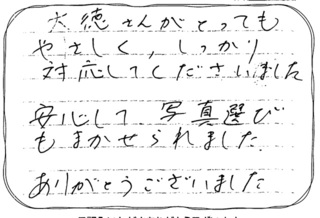 大徳さんがとっても
やさしく、しっかり
対応してくださいました
安心して 写真選び
もまかせられました
ありがとうございました